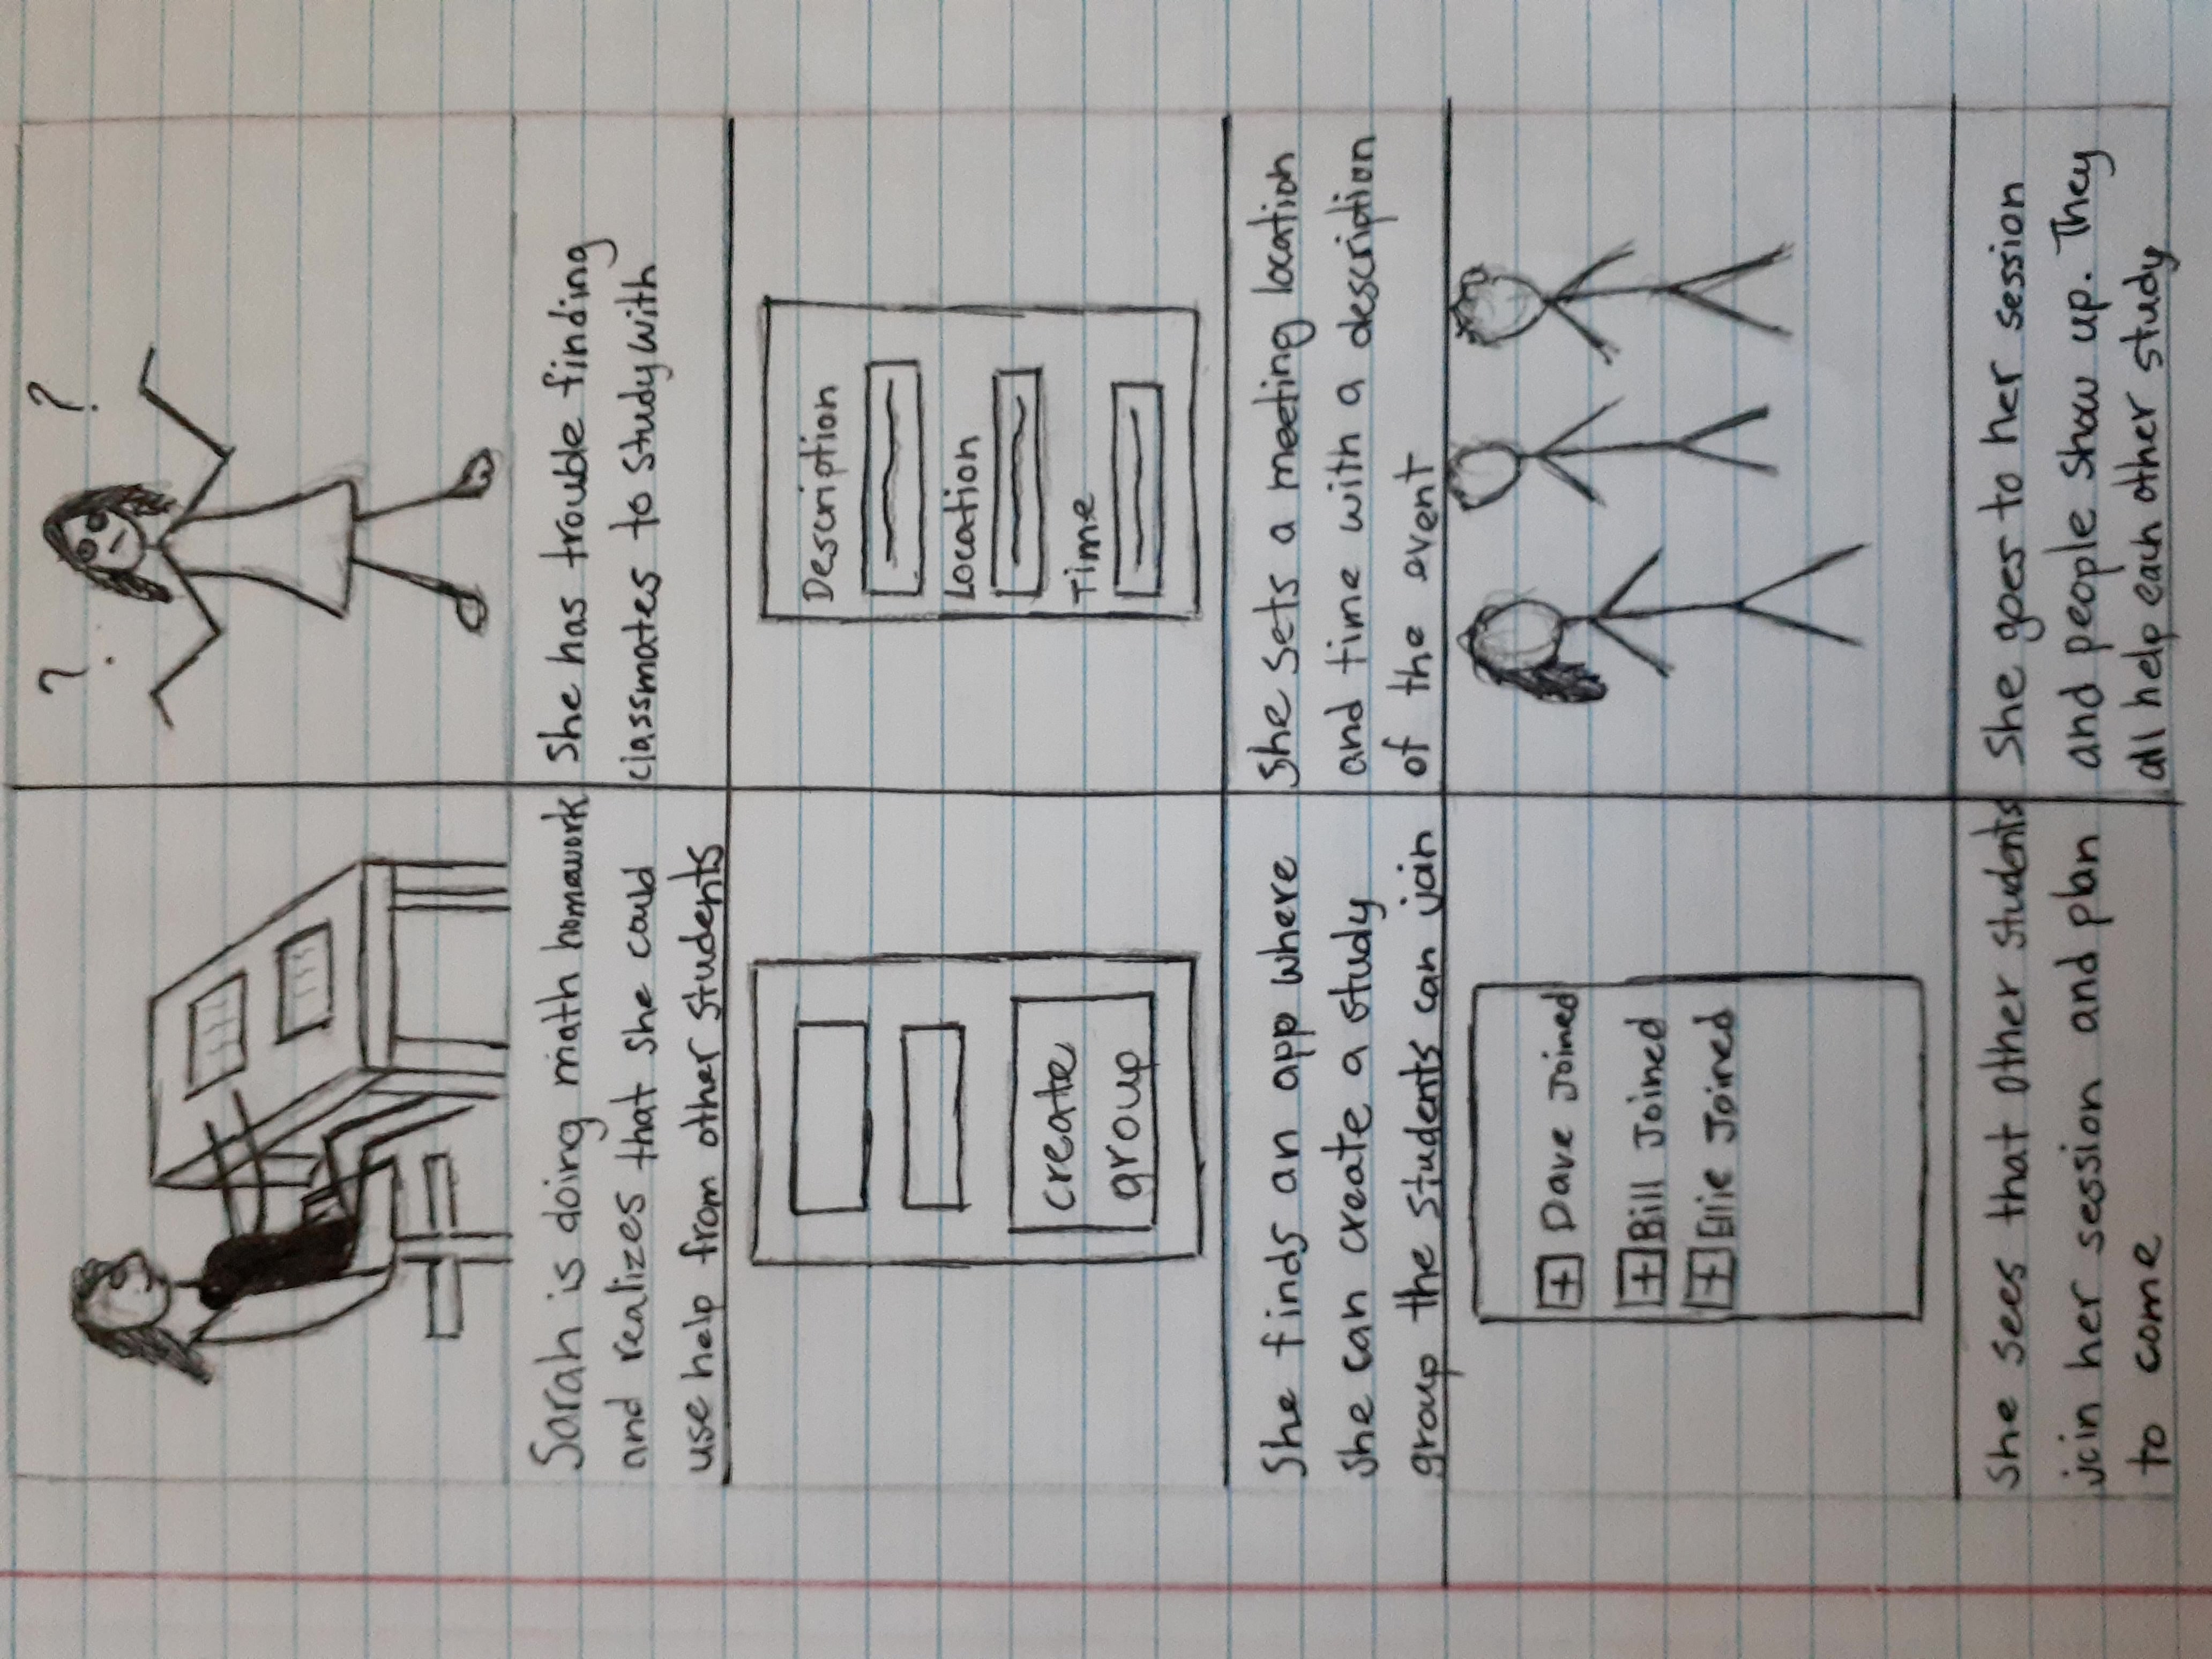 ?
?
Sarah is doing math homework
and realizes that she could
use help from other students
She has trouble finding
classmates to study with
create
group
She finds an app where
she can create a study
group the students can join
Description
Location
Time
She sets a meeting location
and time with a description
of the event
+ Dave Joined
+ Bill Joined
+ Ellie Joined
She sees that other students
join her session and plan
to come
She goes to her session
and people show up. They
all help each other study